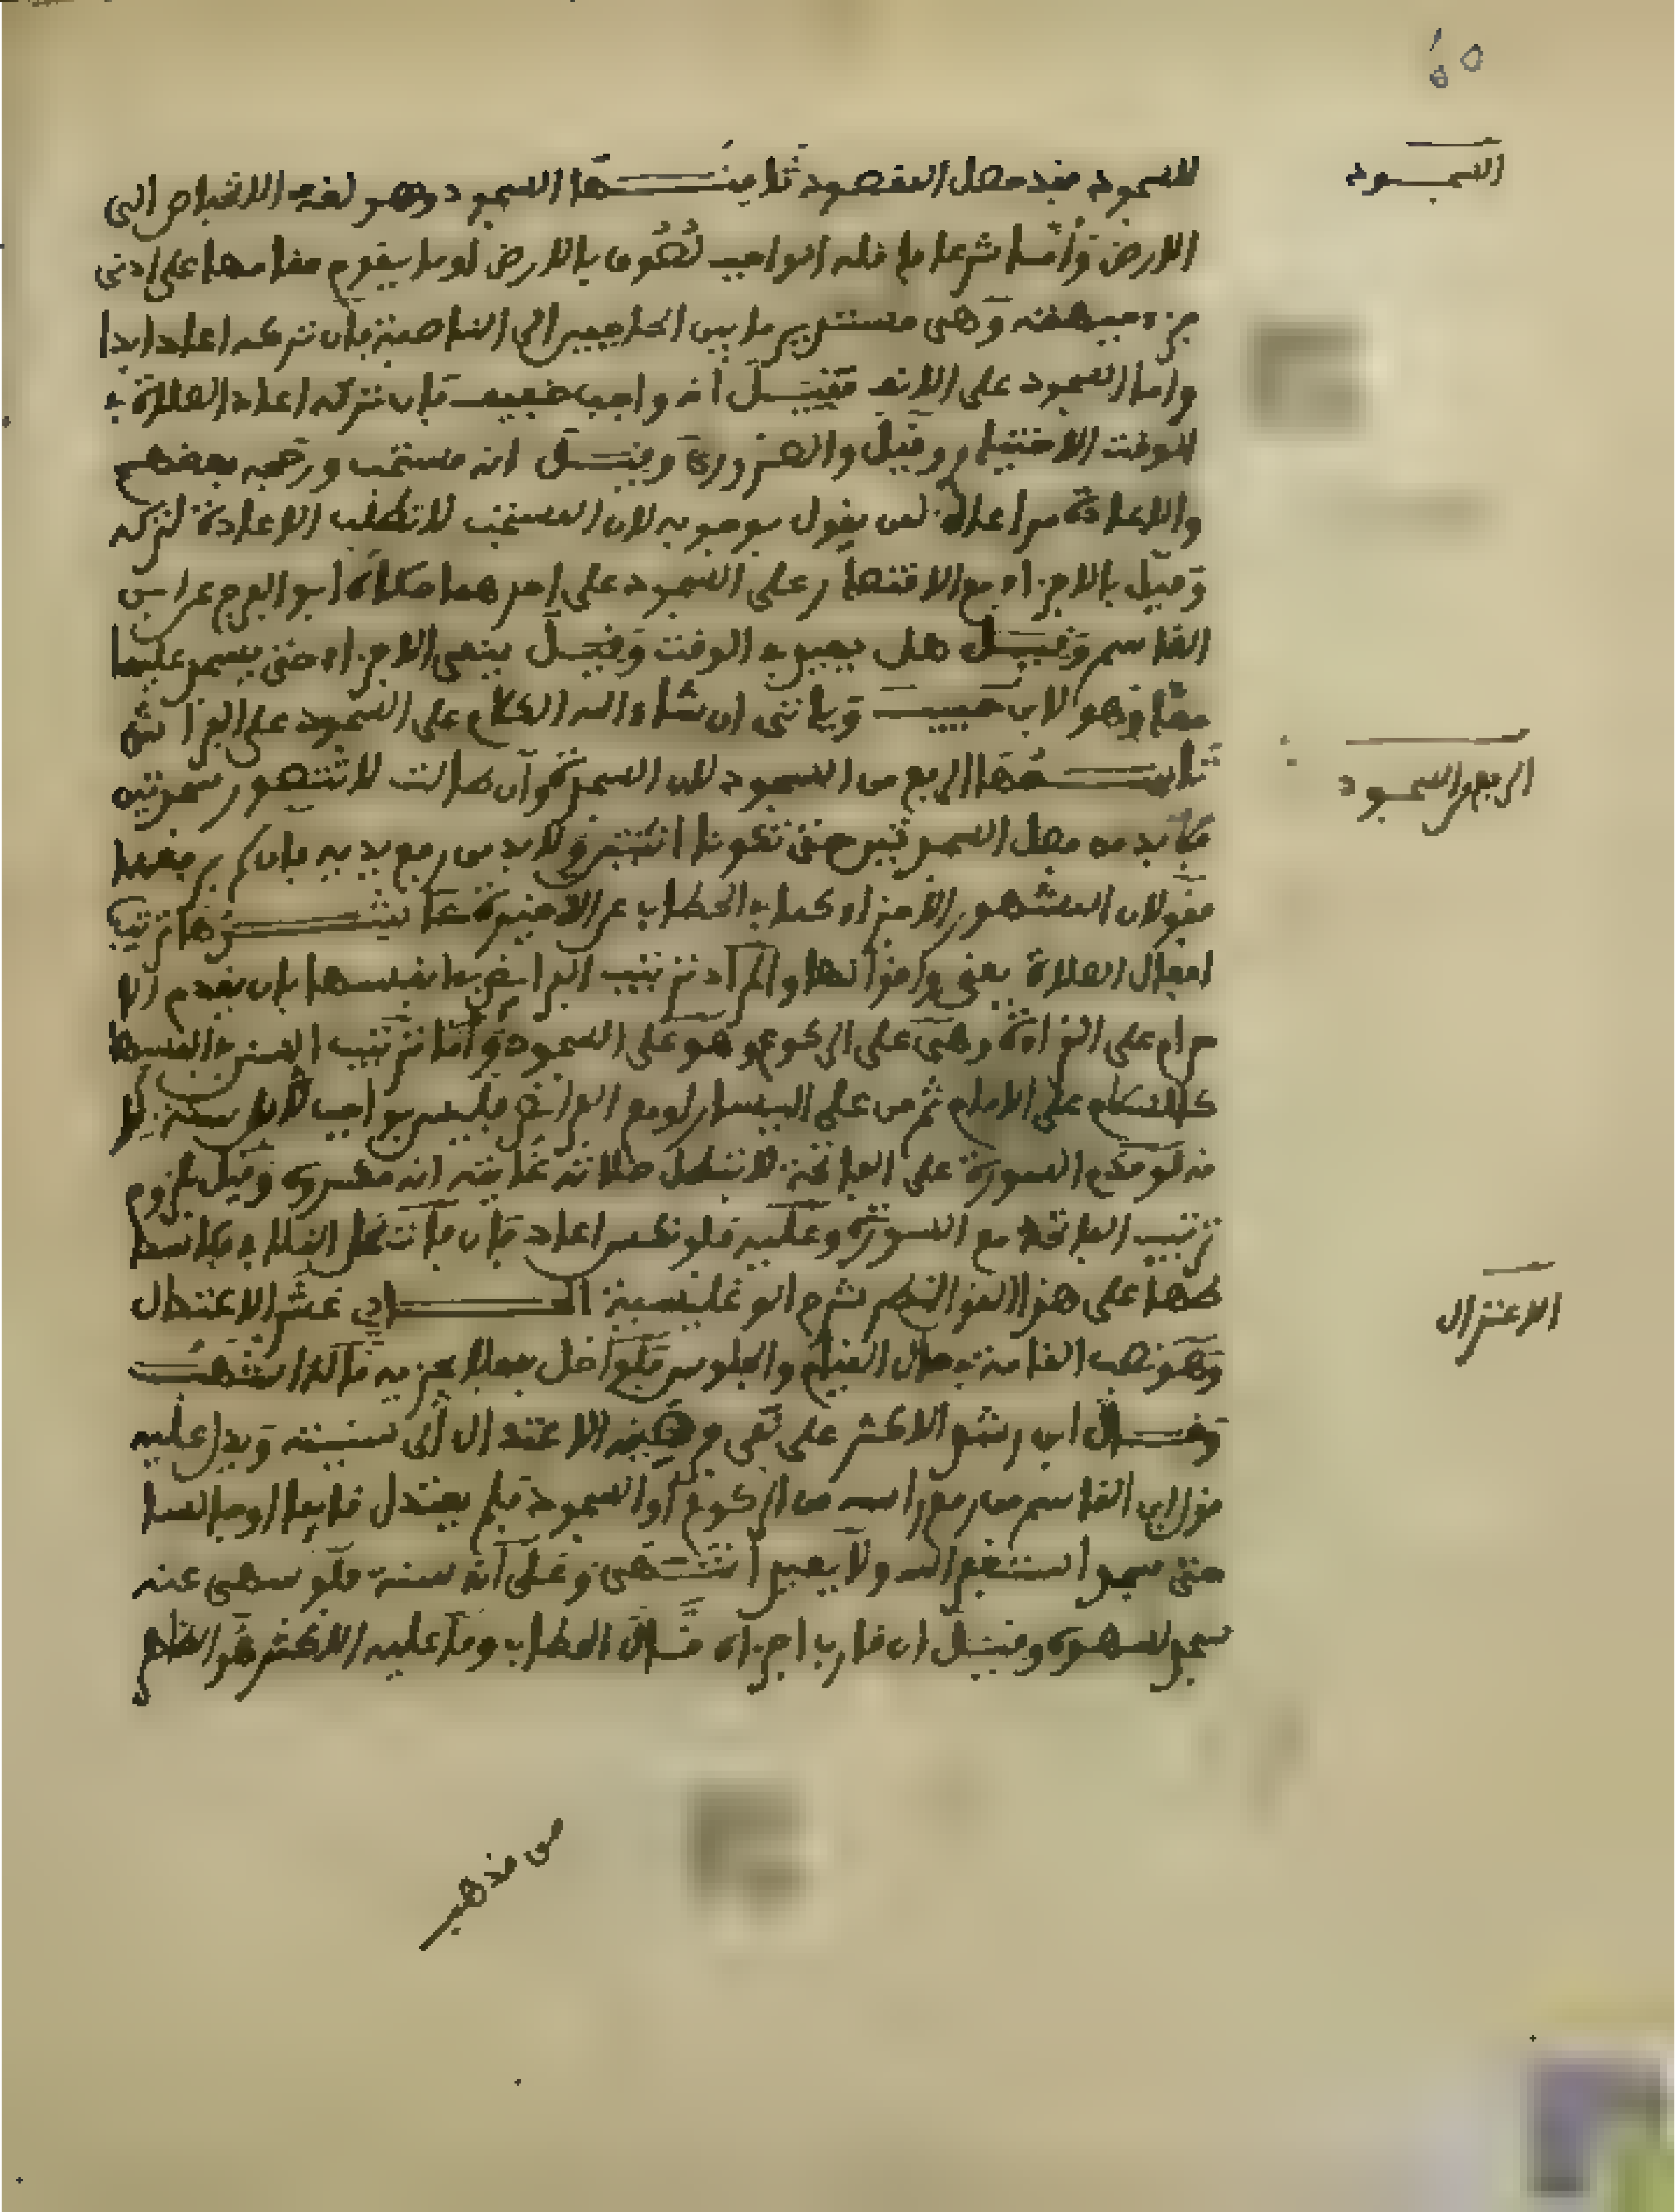 السجود
للسجود فقد حصل المقصود ثامنها السجود وهو لغة الانخفاض الى
الارض وأما شرعا ما فله الواجب لصوق بالارض لو ما يقوم مقامها على ادنى
جزء جبهته وهى مستدير ما بين الحاجبين الى الناصية فان تركه اعاد ابدا
واما السجود على الانف فقيل أنه واجب خفيف فان تركه اعاد الصلاة في
الوقت الاختيار وقيل والضرورة وقيل انه مستحب ورجحه بعضهم
والاعادة مراعاة لمن يقول بوجوبه لان المستحب لا تطلب الاعادة لتركه
وقيل بالاجزاء مع الاقتصار على السجود على احدهما حكاه أبو الفرج عن ابن
القاسم وقيل هل يعيد في الوقت وقيل ينفى الاجزاء حتى يسجد عليهما
معا وهو لابن حبيب ويأتى ان شاء الله الكلام على السجود على
الرفع من السجود
تاسعها الرفع من السجود لان السجدة وان طالت لا تتصور سجدتين
فلا بد من فصل السجدتين حتى تكونا اثنتين ولا بد من رفع يديه فان لم يرفعهما
فقولان المشهور الاجزاء كما في الحطاب عن الذخيرة عاشرها ترتيب
افعال الصلاة يعنى وأقوالها والمراد ترتيب الفرائض في انفسها بان يقدم الا
حرام على القراءة وهى على الركوع وهو على السجود وأما ترتيب السنن في انفسها
كالسلام على الامام ثم من على اليسار او مع الفرائض فليس بواجب لا
نه لو قدم السورة على الفاتحة لا تبطل صلاته غايته انه مكروه وقيل بلزوم
ترتيب الفاتحة مع السورة وعليه فلو نكس اعاد فان فات
على هذا القول شرح ابو غليسية الحادي عشر الاعتدال
الاعتدال
وهو نصب القامة في حال القيام والجلوس فلو اخل به لا يجزيه قاله اشهب
وقال ابن رشد الاكثر على نفى فرضية الاعتدال أى سنيته ويدل عليه
قول ابن القاسم من رفع رأسه من الركوع أو السجود فلم يعتدل قائما او جالسا
حتى سجد استغفر الله ولا يعيد انتهى وعلى أنه سنة فلو سهى عنه
سجد لسهوه وقيل ان قارب اجزأه قال الحطاب وما عليه الاكثر هو الظاهر
من مذهب